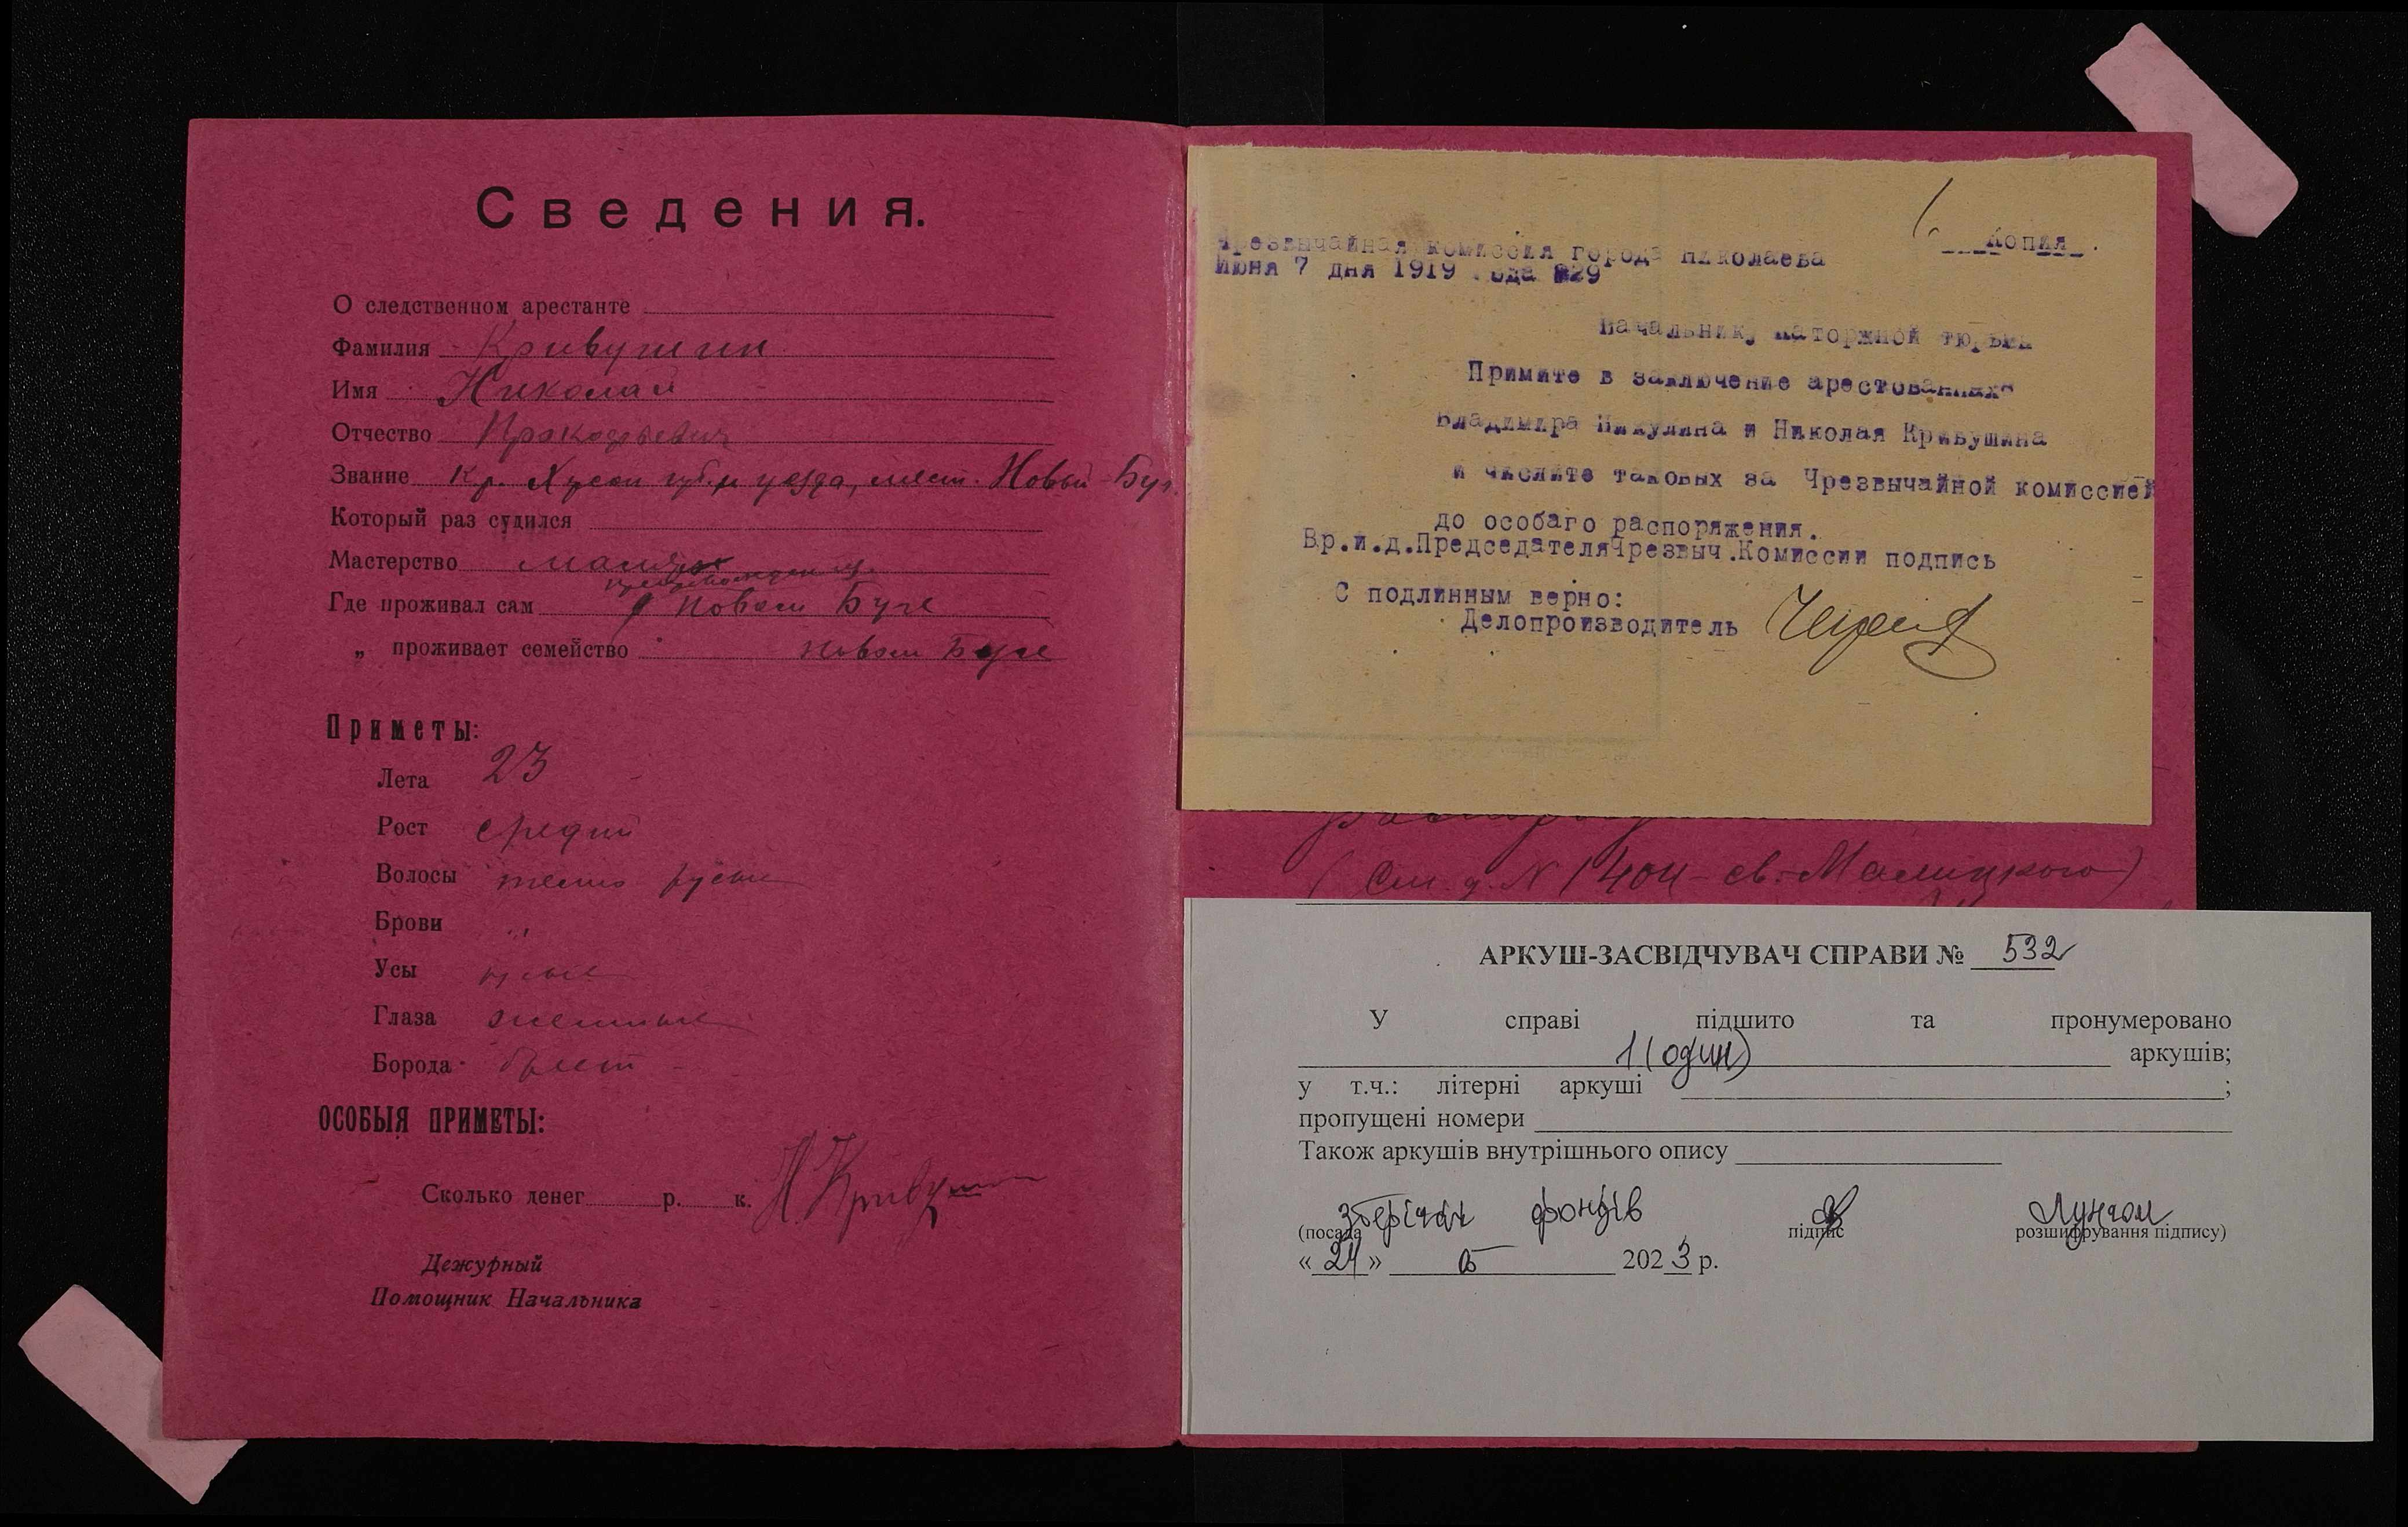 Сведения.
О следственном арестанте
Фамилия Кривушин
Имя Николай
Отчество Прокофьевич
Звание Кр. Херсон губ. и уезда, мест. Новый-Буг.
Который раз судился
Мастерство
Где проживал сам Новом Буге
„ проживает семейство Новом Буге
Приметы:
Лета 23
Рост средний
Волосы темно русые
Брови „
Усы русые
Глаза
Борода бреет
ОСОБЫЯ ПРИМЕТЫ:
Сколько денег р. к. Н. Кривушин
Дежурный
Помощник Начальника
1.
Копия.
Чрезвычайная комиссия города Николаева
Июня 7 дня 1919 года №29
Начальнику каторжной тюрьмы
Примите в заключение арестованных
Владимира Никулина и Николая Кривушина
и числите таковых за Чрезвычайной комиссией
до особаго распоряжения.
Вр.и.д.ПредседателяЧрезвыч.Комиссии подпись
С подлинным верно:
Делопроизводитель
(См. д. N 1404 - св. Малицкого)
АРКУШ-ЗАСВІДЧУВАЧ СПРАВИ № 532
У справі підшито та пронумеровано
1 (один) аркушів;
у т.ч.: літерні аркуші ;
пропущені номери
Також аркушів внутрішнього опису
зберігач фондів
(посада підпис розшифрування підпису)
« 24 » 05 2023 р.